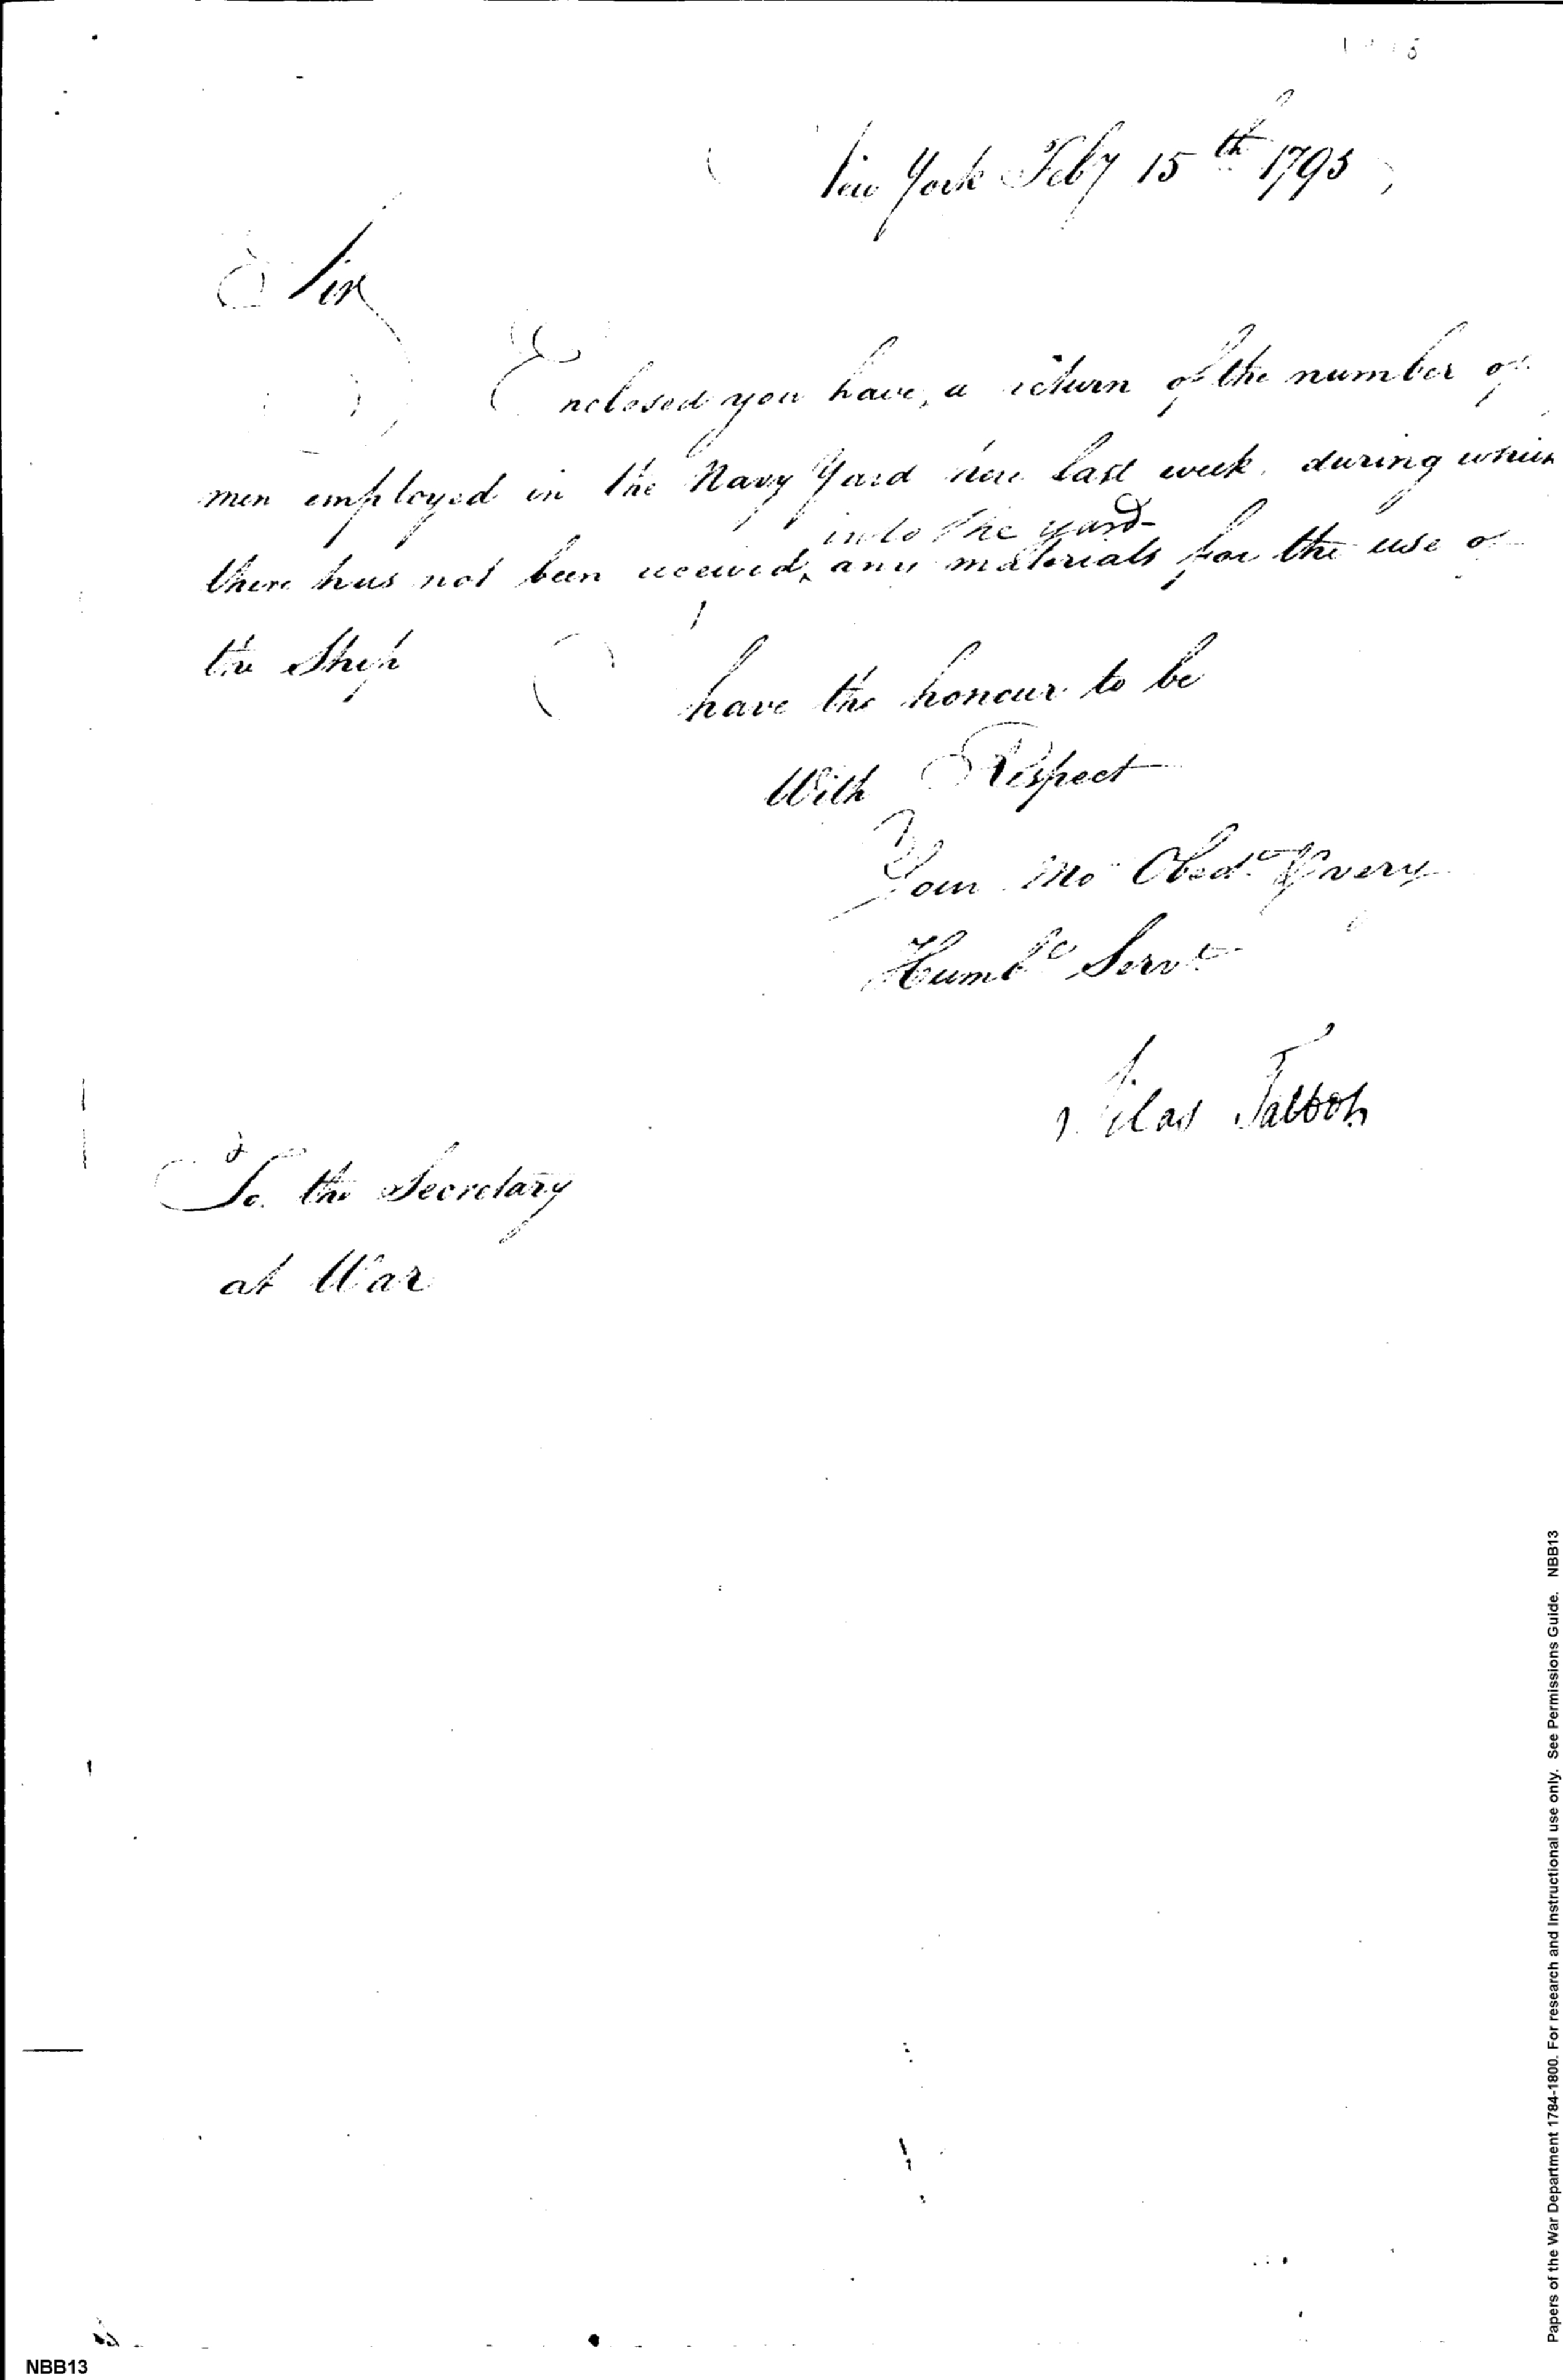 New York Feby 15th 1795
Sir
Enclosed you have, a return of the number of
men employed in the Navy Yard here last week, during which
into the yard
there has not been received, any materials for the use of
the Ship
I have the honour to be
With Respect
Your Mo Obedt & very
Humble Servt
Silas Talbot
To the Secretary
at War
Papers of the War Department 1784-1800. For research and Instructional use only. See Permissions Guide. NBB13
NBB13